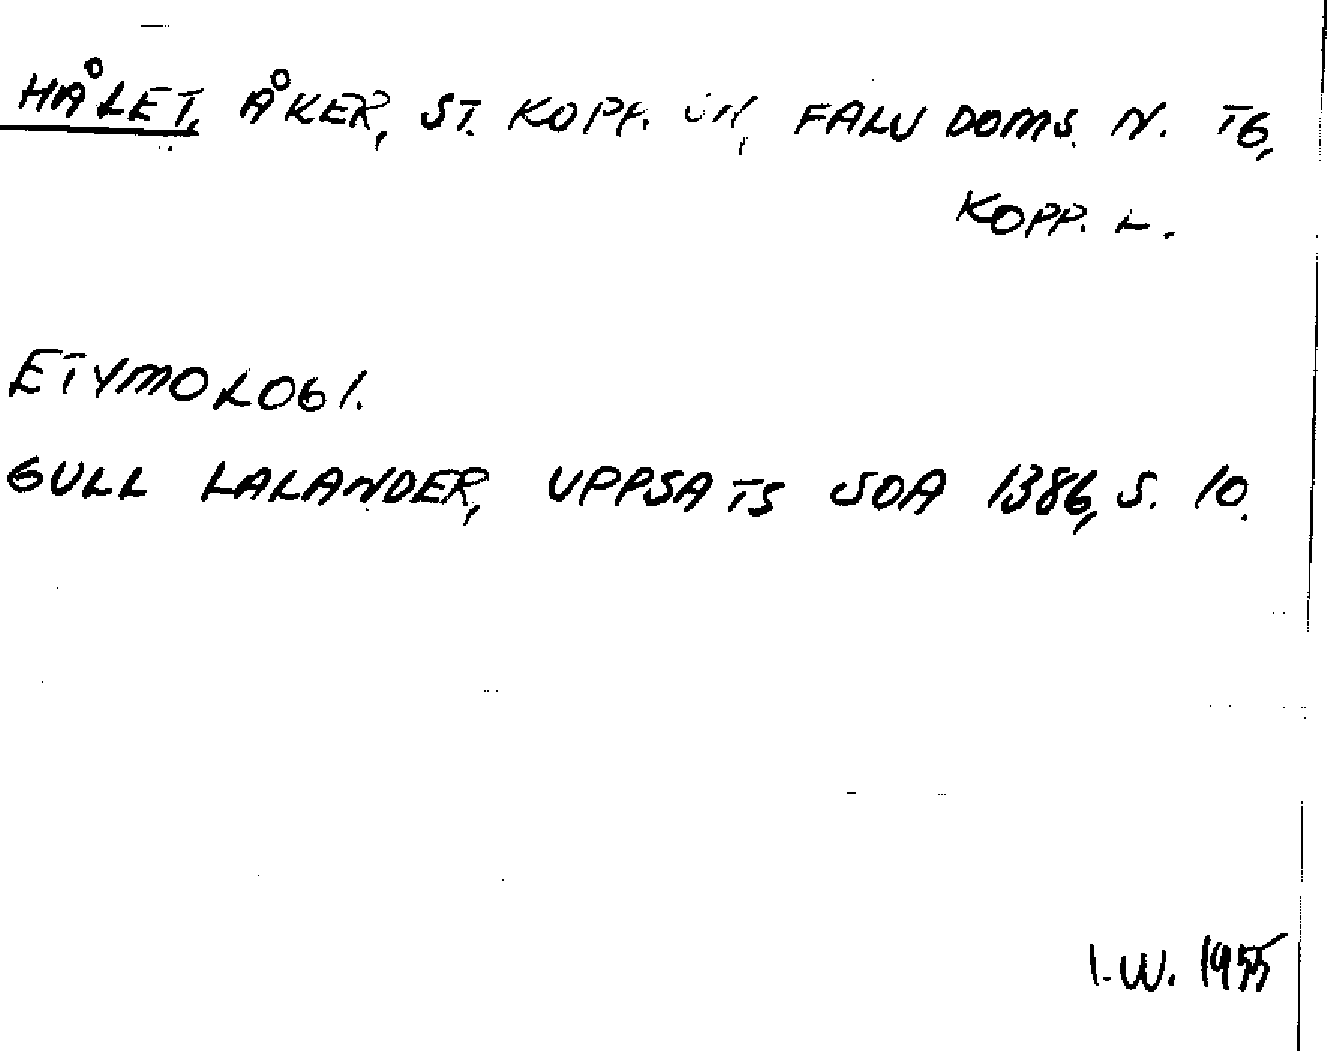 HÅLET, ÅKER, ST. KOPP. FALU DOMS. N. TG,
KOPP. L.
ETYMOLOGI.
GULL LALANDER, UPPSATS SOA 1386, S. 10.
I.W. 1955